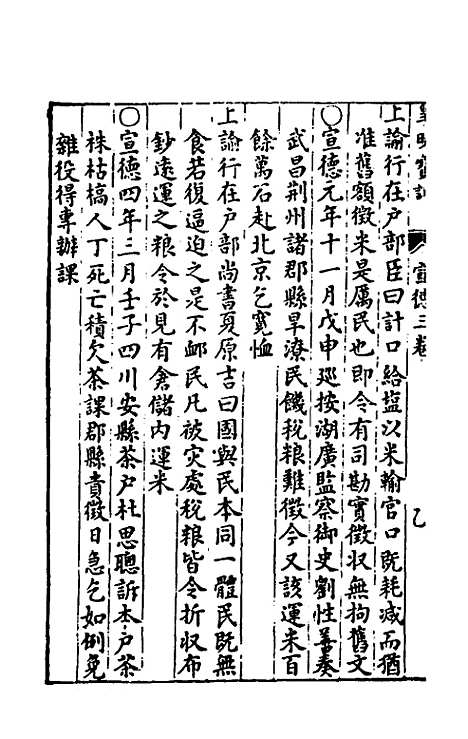 皇明寶訓 宣德三卷 乙
上諭行在户部臣曰計口給塩以米輸官口既耗减而猶
准舊額徵米是厲民也即令有司勘實徵収無拘舊文
○宣德元年十一月戊申廵按湖廣監察御史劉性善奏
武昌荆州諸郡縣旱潦民饑稅粮難徵今又該運米百
餘萬石赴北京乞寛恤
上諭行在户部尚書夏原吉曰國與民本同一體民既無
食若復逼迫之是不邺民凡被灾處稅粮皆令折収布
鈔遠運之粮令於見有倉儲内運米
○宣德四年三月壬子四川安縣茶户杜思聰訴本户茶
株枯槁人丁死亡積欠茶課郡縣責徵日急乞如例免
雜役得專辦課